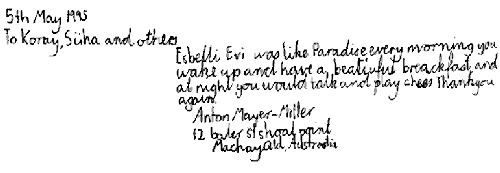 5th May 1995
To Koray, Süha and others
Esbelli Evi was like Paradise every morning you
wake up and have a beatiufut breackfast and
at night you would talk and play chess Thankyou
again
Anton Mayer-Miller
12 st
Mackay Qld, Australia